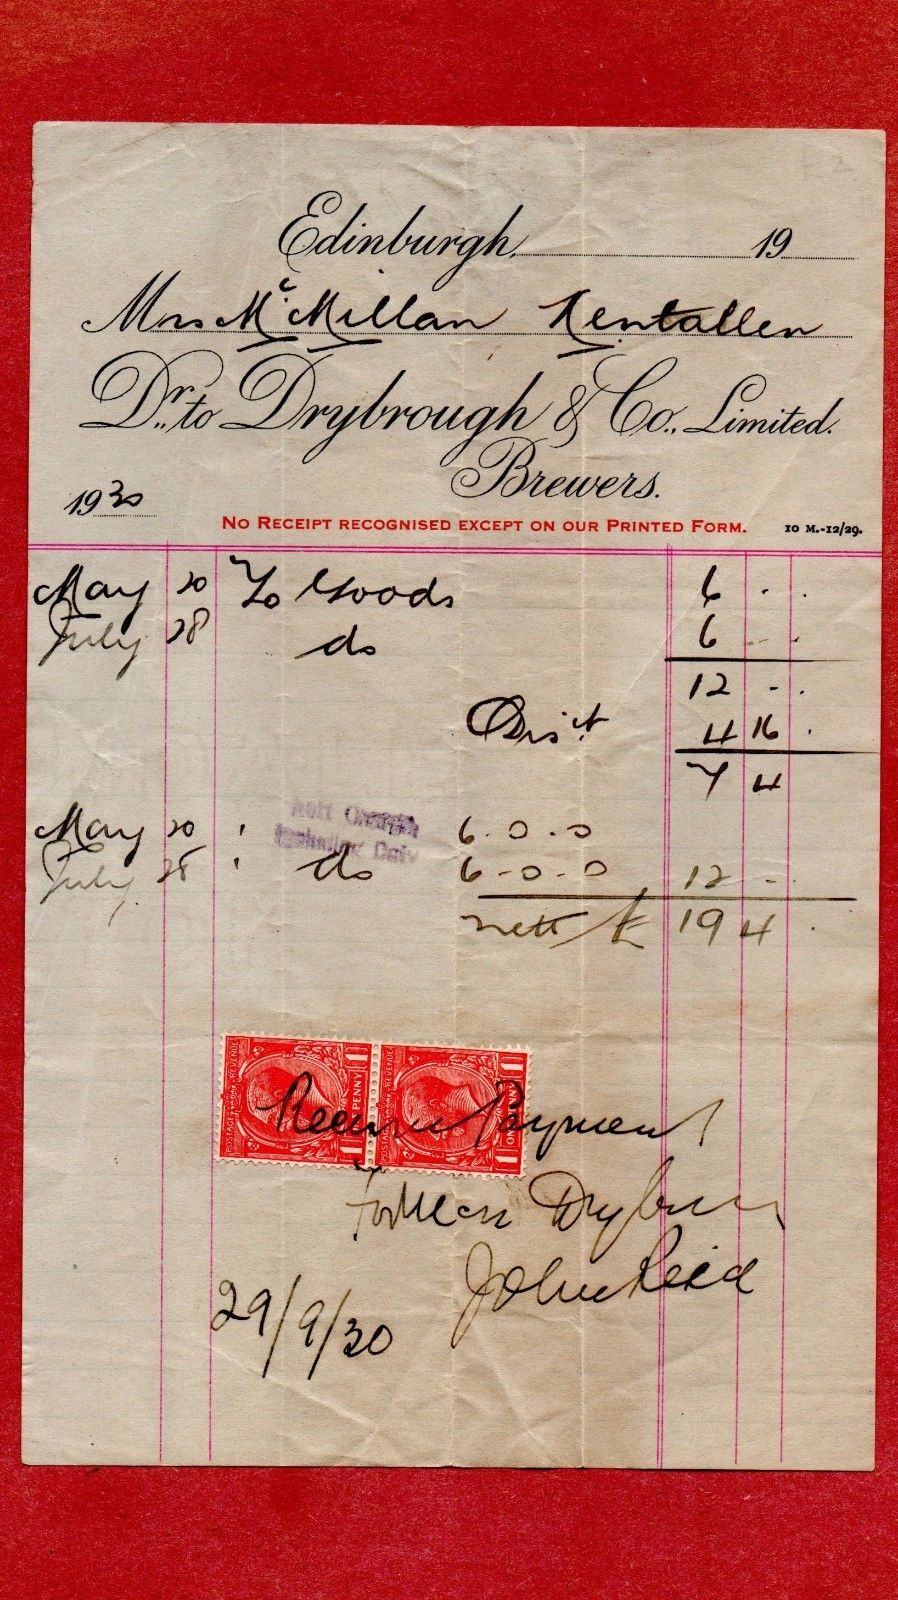 Edinburgh, 19
Mrs McMillan Kentallen
Dr. to Drybrough & Co., Limited.
Brewers.
1930
NO RECEIPT RECOGNISED EXCEPT ON OUR PRINTED FORM. 10 M.-12/29.
May 20 To Goods 6 . .
July 28 do 6 - .
12 - .
Dis't 4 16 .
7 4
May 20 " Nett Charges 6.0.0
July 28 " do 6-0-0 12 - .
nett £ 19 4 .
POSTAGE REVENUE ONE PENNY 1 POSTAGE REVENUE ONE PENNY 1
Payment
John Reid
29/9/30